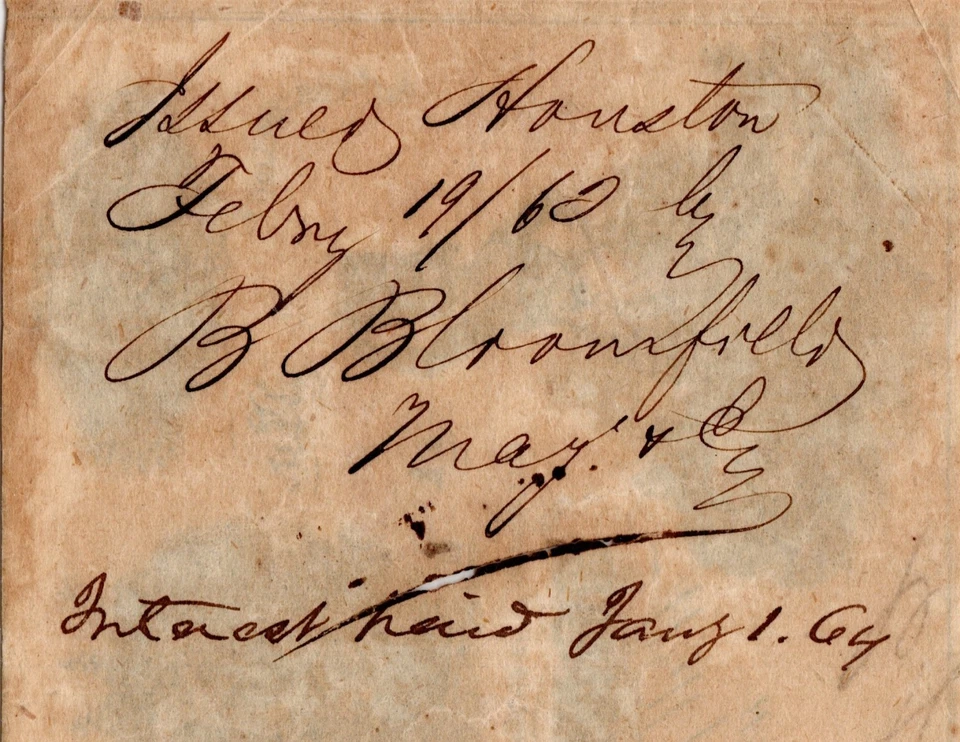 Issued Houston
Febry 19/63 by
B Bloomfield
Maj. & Q
Interest paid Jany 1. 64